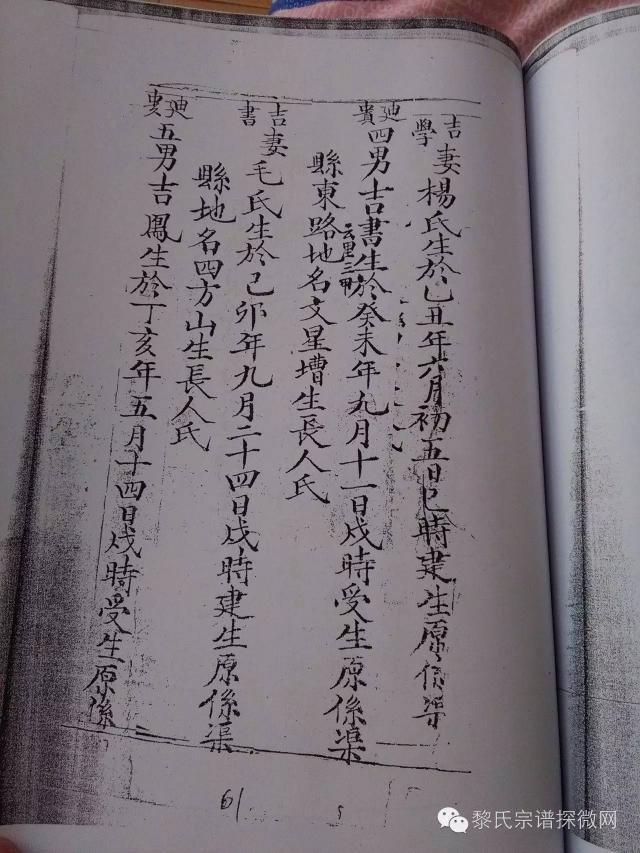 吉學妻楊氏生於己丑年六月初五日巳時建生原係渠
迪貴四男吉書生於癸未年九月十一日戌時受生原係渠
縣東路云里三甲地名文星墰生長人氏
吉書妻毛氏生於己卯年九月二十四日戌時建生原係渠
縣地名四方山生長人氏
迪貴五男吉鳳生於丁亥年五月十四日戌時受生原係
61
黎氏宗谱探微网